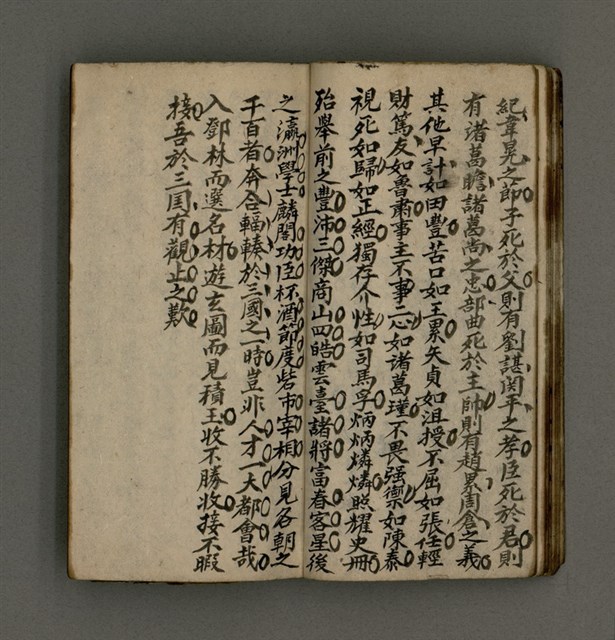 紀韋晃之節子死於父則有劉諶関平之孝臣死於君則
有諸葛瞻諸葛尚之忠部曲死於主帥則有趙累周倉之義
其他早計如田豐苦口如王累矢貞如沮授不屈如張任輕
財篤友如魯肅事主不事二心如諸葛瑾不畏强禦如陳泰
視死如歸如正經獨存介性如司馬孚炳炳燐燐照耀史冊
殆舉前之豐沛三傑商山四皓雲臺諸將富春客星後
之瀛洲學士麟閣功臣杯酒節度砦市宰相分見各朝之
千百者奔合輻輳於三國之一時豈非人才一大都會哉
入鄧林而選名材遊玄圃而見積玉收不勝收接不暇
接吾於三国有觀止之歎